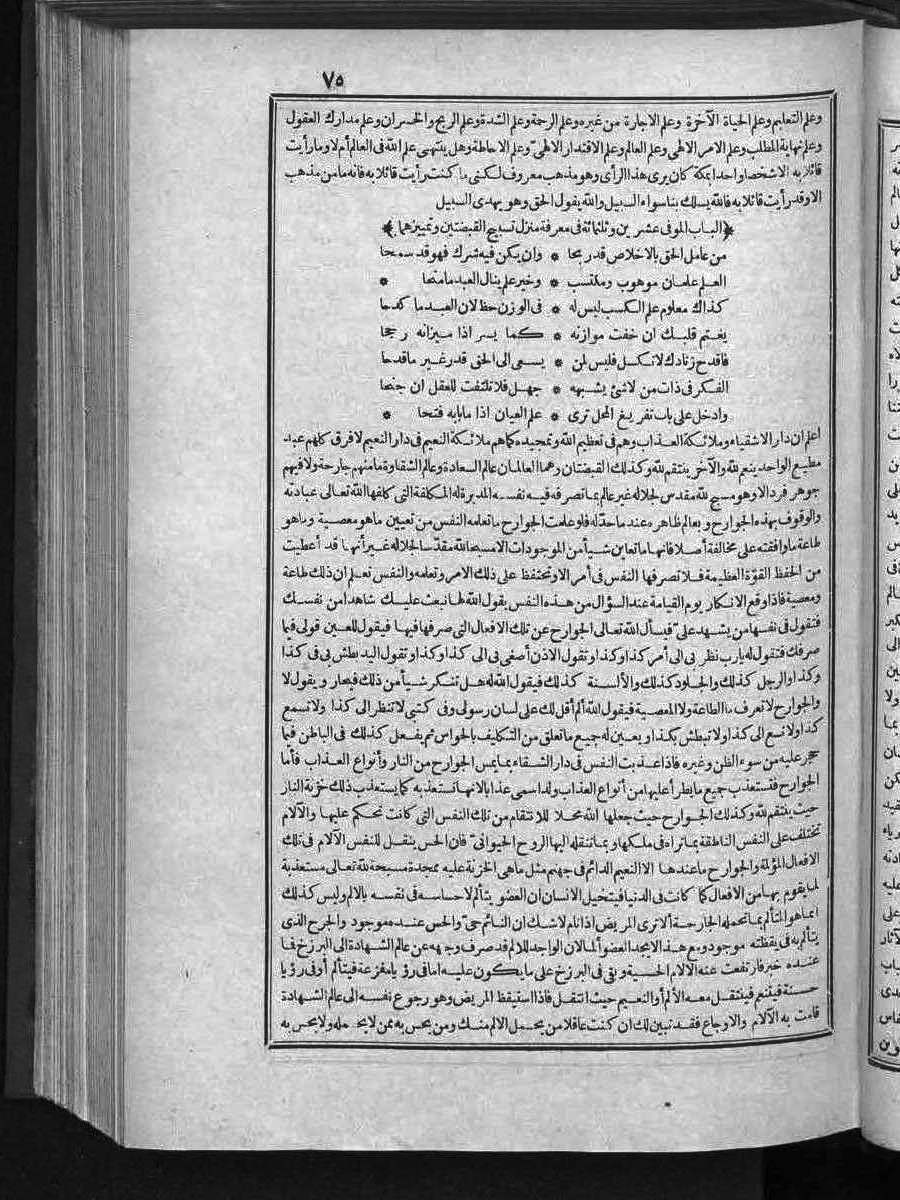 ٧٥
وعلم التعليم وعلم الحياة الآخرة وعلم الاجارة من غيره وعلم الرحمة وعلم الشدة وعلم الربح والخسران وعلم مدارك العقول
وعلم نهاية المطلب وعلم الامر الالهى وعلم العالم وعلم الاقتدار الالهىّ وعلم الاحاطة وهل ينتهى علم الله فى العالم أم لا وما رأيت
قائلا به الا شخصا واحدا بمكة كان يرى هذا الرأى وهو مذهب معروف لكنى ما كنت رأيت قائلا به فانه ما من مذهب
الا وقد رأيت قائلا به فالله يسلك بنا سواء السبيل والله يقول الحق وهو يهدى السبيل
﴿الباب الموفى عشرين وثلثمائة فى معرفة منزل تسبيح القبضتين وتمييزهما﴾
من عامل الحق بالاخلاص قد ربحا * وان يكن فيه شرك فهو قد سمحا
العلم علمان موهوب ومكتسب * وخير علم ينال العبد ما منحا *
كذاك معلوم علم الكسب ليس له * فى الوزن حظ لان العبد ما كدحا
يغتم قلبك ان خفت موازنه * كما يسر اذا ميزانه رجحا
فاقدح زنادك لا تكسل فليس لمن * يسعى الى الحق قدر غير ما قدحا
الفكر فى ذات من لا شئ يشبهه * جهل فلا تلتفت للعقل ان جنحا
وادخل على باب تفريغ المحل ترى * علم العيان اذا ما بابه فتحا *
اعلم ان دار الاشقياء وملائكة العذاب وهم فى تعظيم الله وتمجيده كما هم ملائكة النعيم فى دار النعيم لا فرق كلهم عبد
مطيع الواحد ينعم لله والآخر ينتقم لله وكذلك القبضتان وهما العالمان عالم السعادة وعالم الشقاوة ما منهم جارحة ولا فيهم
جوهر فرد الا وهو مسبح لله مقدس لجلاله غير عالم بما تصرفه فيه نفسه المدبرة له المكلفة التى كلفها الله تعالى عبادته
والوقوف بهذه الجوارح وبعالم ظاهره عند ما حدّ له فلو علمت الجوارح ما تعلمه النفس من تعيين ما هو معصية وما هو
طاعة ما وافقته على مخالفة أصلا فانها ما تعاين شيأ من الموجودات الا مسبحا لله مقدّسا لجلاله غير أنها قد أعطيت
من الحفظ القوّة العظيمة فلا تصرفها النفس فى أمر الا وتحتفظ على ذلك الامر وتعلمه والنفس تعلم ان ذلك طاعة
ومعصية فاذا وقع الانكار يوم القيامة عند السؤال من هذه النفس يقول الله لها نبعث عليك شاهدا من نفسك
فتقول فى نفسها من يشهد علىّ فيسأل الله تعالى الجوارح عن تلك الافعال التى صرفها فيها فيقول للعين قولى فيما
صرفك فتقول له يارب نظر بى الى أمر كذا وكذا وتقول الاذن أصغى بى الى كذا وكذا وتقول اليد بطش بى فى كذا
وكذا والرجل كذلك والجلود كذلك والألسنة كذلك فيقول الله له هل تنكر شيأ من ذلك فيحار ويقول لا
والجوارح لا تعرف ما الطاعة ولا المعصية فيقول الله ألم أقل لك على لسان رسولى وفى كتبى لا تنظر الى كذا ولا تسمع
كذا ولا تسع الى كذا ولا تبطش بكذا ويعين له جميع ما تعلق من التكليف بالحواس ثم يفعل كذلك فى الباطن فيما
حجر عليه من سوء الظن وغيره فاذا عذبت النفس فى دار الشقاء بما يمس الجوارح من النار وأنواع العذاب فأما
الجوارح فتستعذب جميع ما يطرأ عليها من أنواع العذاب ولذا سمى عذابا لانها تستعذبه كما يستعذب ذلك خزنة النار
حيث ينتقم لله وكذلك الجوارح حيث جعلها الله محلا للانتقام من تلك النفس التى كانت تحكم عليها والآلام
تختلف على النفس الناطقة بما تراه فى ملكها وبما تنقله اليها الروح الحيوانىّ فان الحس ينقل للنفس الآلام فى تلك
الافعال المؤلمة والجوارح ما عندها الا النعيم الدائم فى جهنم مثل ما هى الخزنة عليه ممجدة مسبحة لله تعالى مستعذبة
لما يقوم بها من الافعال كما كانت فى الدنيا فيتخيل الانسان ان العضو يتألم لاحساسه فى نفسه بالالم وليس كذلك
انما هو المتألم بما تحمله الجارحة ألا ترى المريض اذا نام لا شك ان النائم حىّ والحس عنده موجود والجرح الذى
يتألم به فى يقظته موجود ومع هذا لا يجد العضو ألما لان الواجد للالم قد صرف وجهه عن عالم الشهادة الى البرزخ فما
عنده خبر فارتفعت عنه الآلام الحسية وبقى فى البرزخ على ما يكون عليه اما فى رؤيا مفزعة فيتألم أو فى رؤيا
حسنة فيتنعم فينتقل معه الألم أو النعيم حيث انتقل فاذا استيقظ المريض وهو رجوع نفسه الى عالم الشهادة
قامت به الآلام والاوجاع فقد تبين لك ان كنت عاقلا من يحمل الالم منك ومن يحس به ممن لا يحمله ولا يحس به